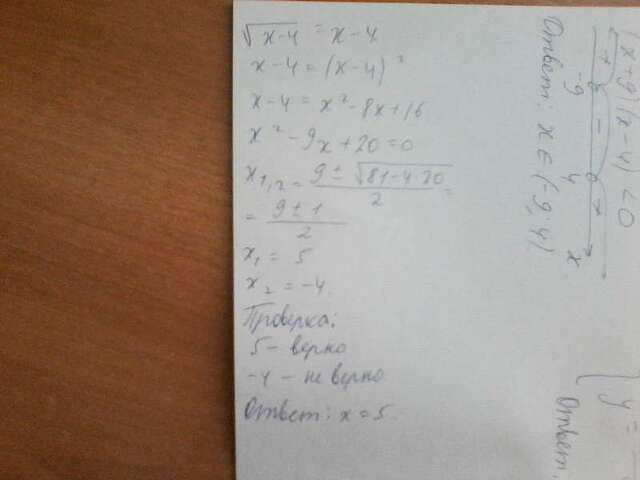 √x-4 = x-4
x-4 = (x-4)²
x-4 = x²-8x+16
x²-9x+20=0
x₁,₂ = (9 ± √81-4·20)/2 =
= (9 ± 1)/2
x₁ = 5
x₂ = -4
Проверка:
5 - верно
-4 - не верно
Ответ: x = 5.
(x+9)(x-4) < 0
+ - +
-9 4 x
Ответ: x ∈ (-9; 4)
{ y =
Ответ.